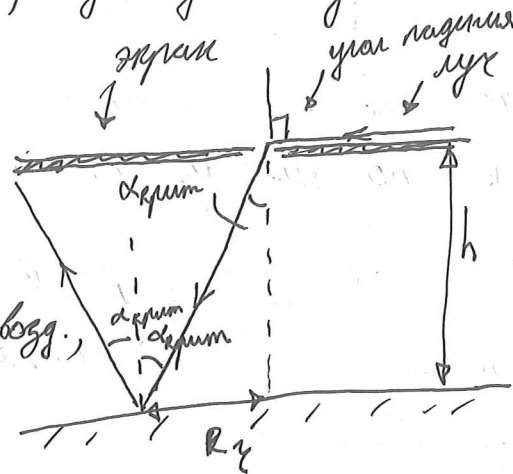 экран
угол падения
луч
αкрит
h
возд.,
αкрит
αкрит